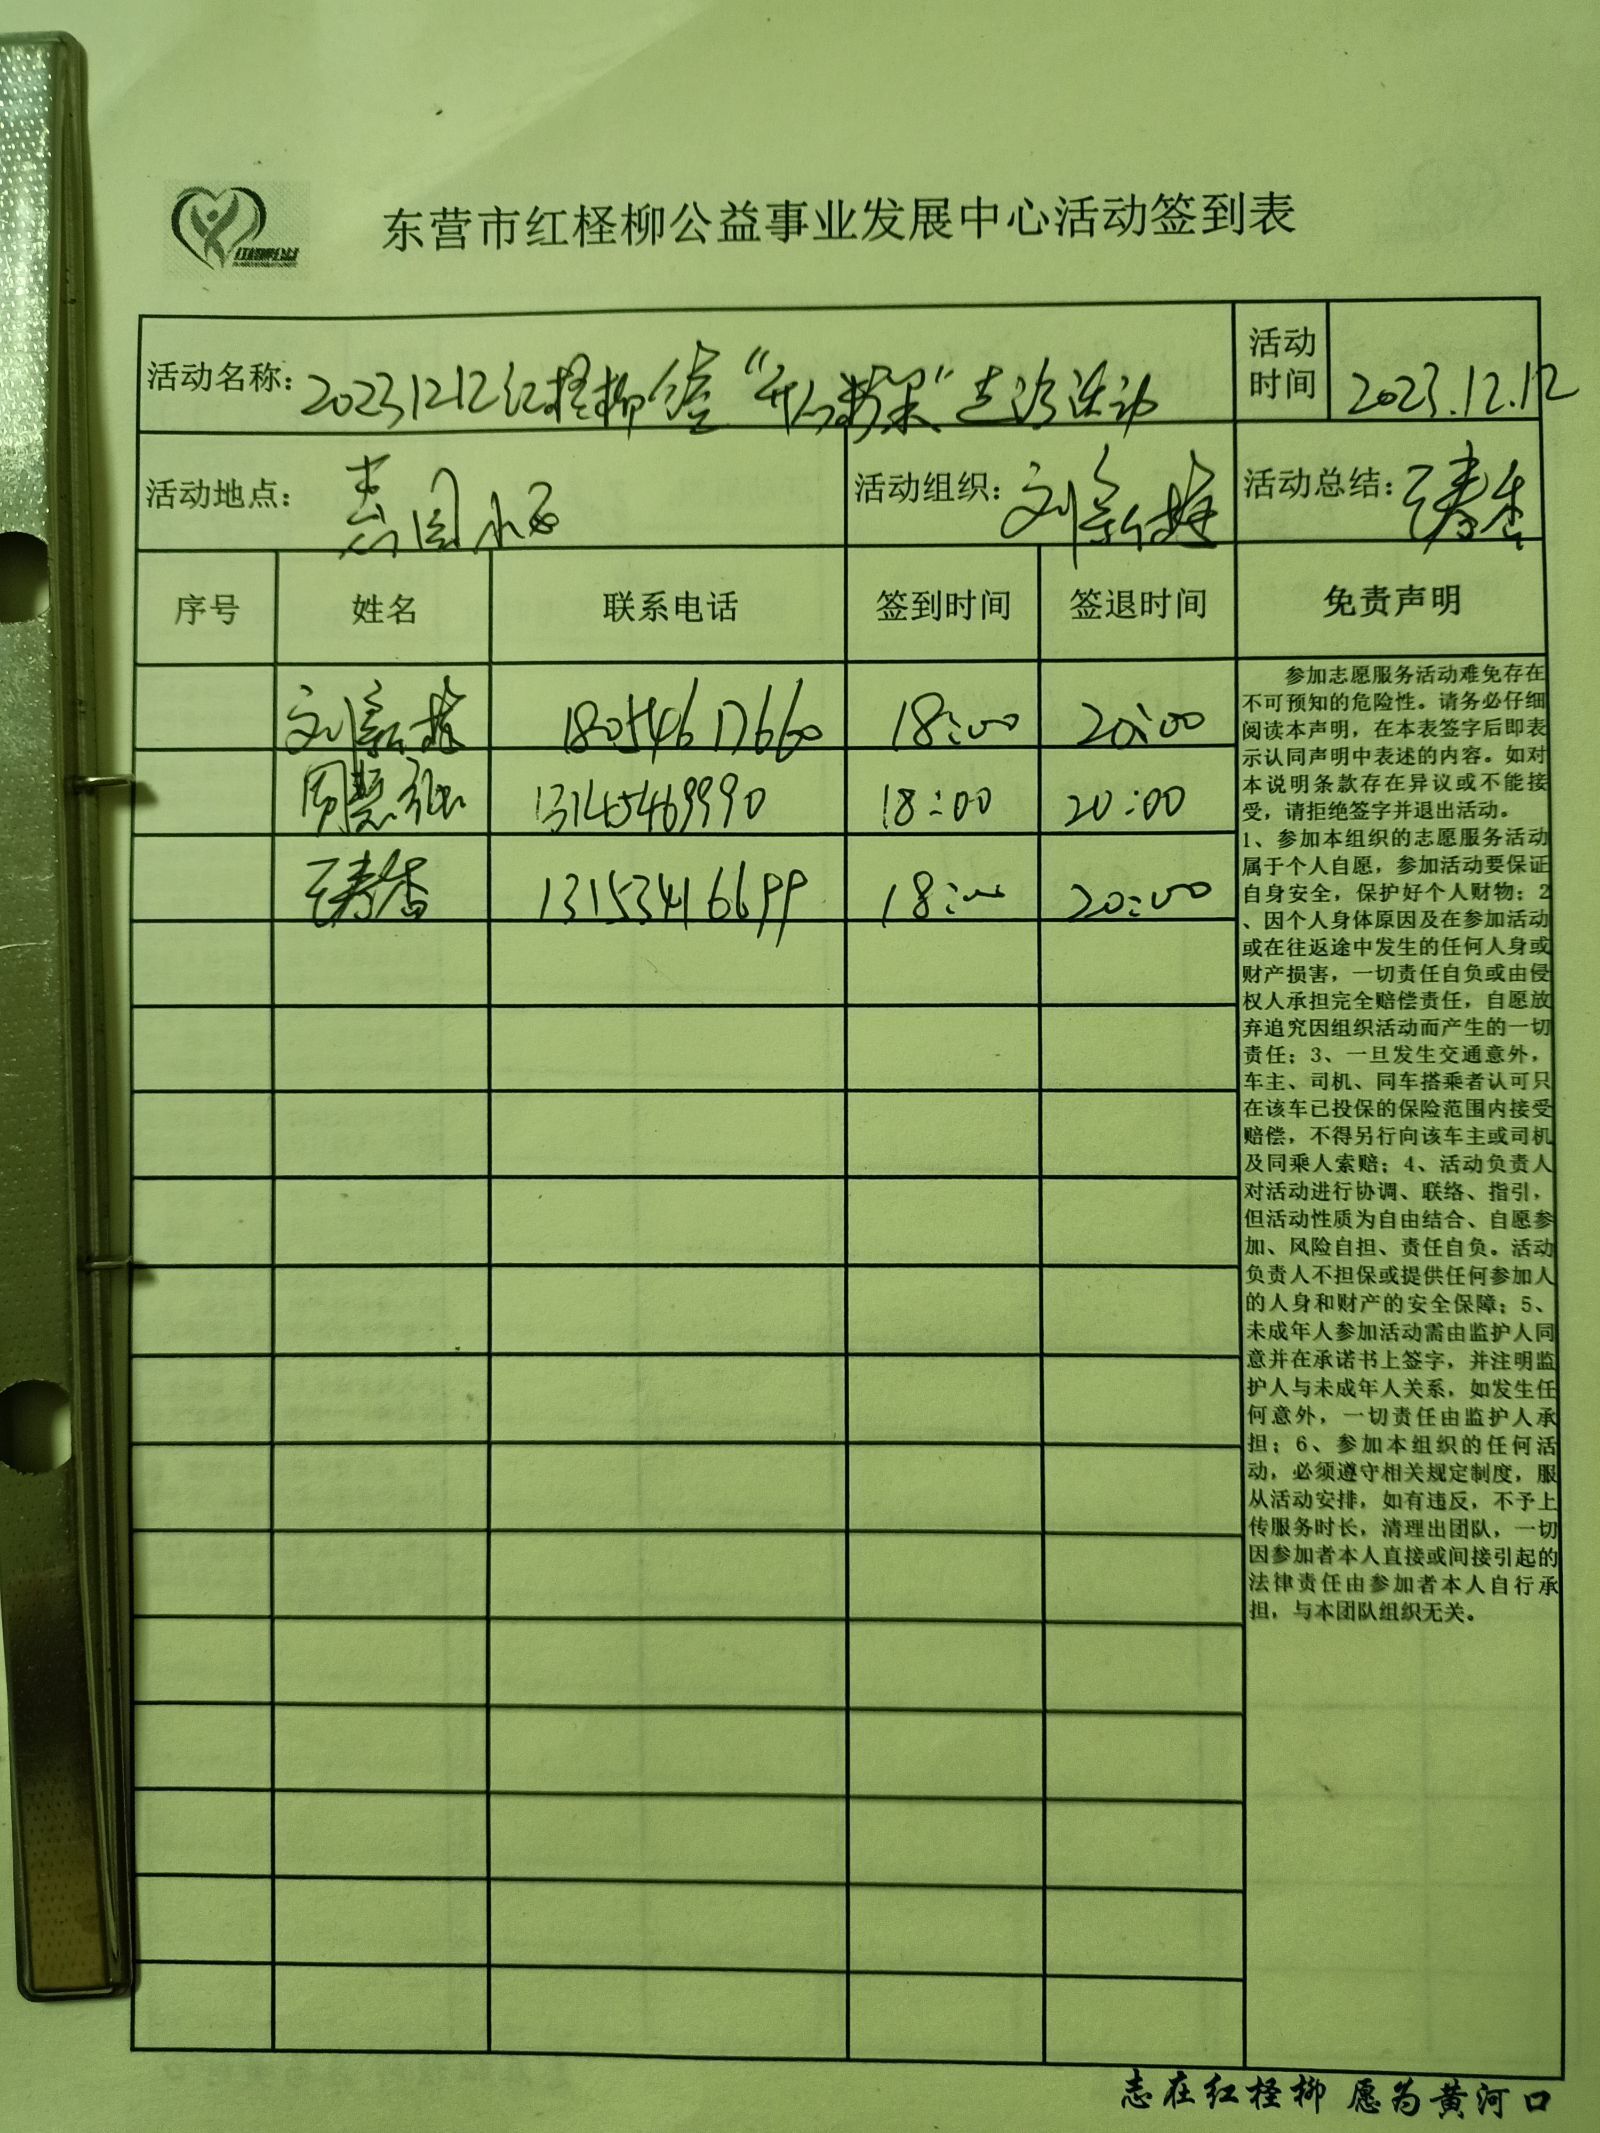 东营市红柽柳公益事业发展中心活动签到表
活动名称: 20231212红柽柳 活动
活动时间 2023.12.12
活动地点:
活动组织: 刘新
活动总结: 王春香
序号 姓名 联系电话 签到时间 签退时间 免责声明
刘新 18054617660 18:00 20:00
周慧 13145469990 18:00 20:00
王春香 13153416699 18:00 20:00
参加志愿服务活动难免存在
不可预知的危险性。请务必仔细
阅读本声明，在本表签字后即表
示认同声明中表述的内容。如对
本说明条款存在异议或不能接
受，请拒绝签字并退出活动。
1、参加本组织的志愿服务活动
属于个人自愿，参加活动要保证
自身安全，保护好个人财物；2
、因个人身体原因及在参加活动
或在往返途中发生的任何人身或
财产损害，一切责任自负或由侵
权人承担完全赔偿责任，自愿放
弃追究因组织活动而产生的一切
责任；3、一旦发生交通意外，
车主、司机、同车搭乘者认可只
在该车已投保的保险范围内接受
赔偿，不得另行向该车主或司机
及同乘人索赔；4、活动负责人
对活动进行协调、联络、指引，
但活动性质为自由结合、自愿参
加、风险自担、责任自负。活动
负责人不担保或提供任何参加人
的人身和财产的安全保障；5、
未成年人参加活动需由监护人同
意并在承诺书上签字，并注明监
护人与未成年人关系，如发生任
何意外，一切责任由监护人承
担；6、参加本组织的任何活
动，必须遵守相关规定制度，服
从活动安排，如有违反，不予上
传服务时长，清理出团队，一切
因参加者本人直接或间接引起的
法律责任由参加者本人自行承
担，与本团队组织无关。
志在红柽柳 愿为黄河口